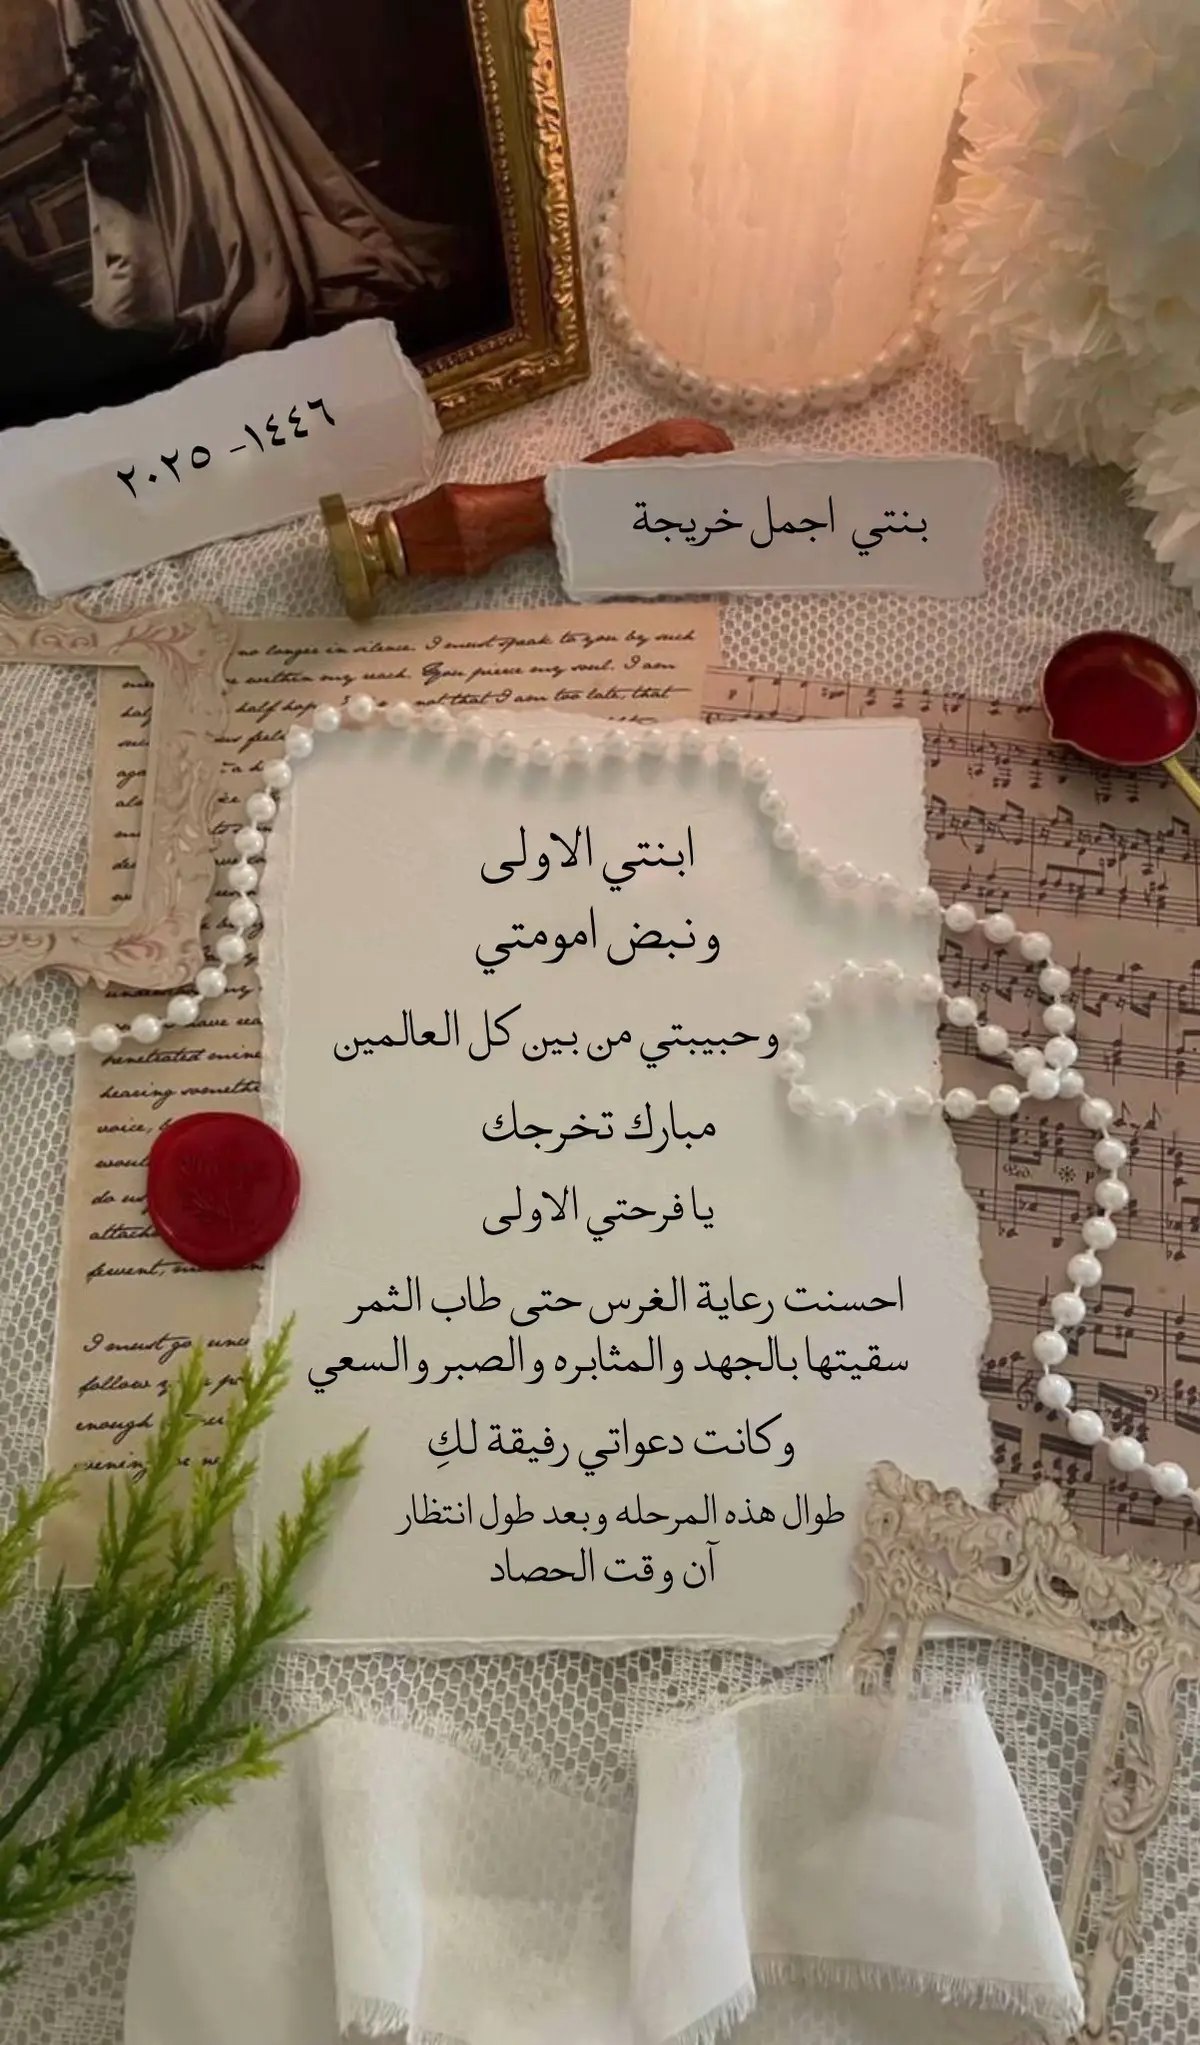 ١٤٤٦- ٢٠٢٥
بنتي اجمل خريجة
no longer in silence. I must speak to you by such
within my reach. You pierce my soul. I am
half not that I am too late, that
ابنتي الاولى
ونبض امومتي
وحبيبتي من بين كل العالمين
مبارك تخرجك
يافرحتي الاولى
احسنت رعاية الغرس حتى طاب الثمر
سقيتها بالجهد والمثابره والصبر والسعي
وكانت دعواتي رفيقة لكِ
طوال هذه المرحله وبعد طول انتظار
آن وقت الحصاد
penetrated mine
hearing
voice,
do
fervent,
I must go
follow
enough